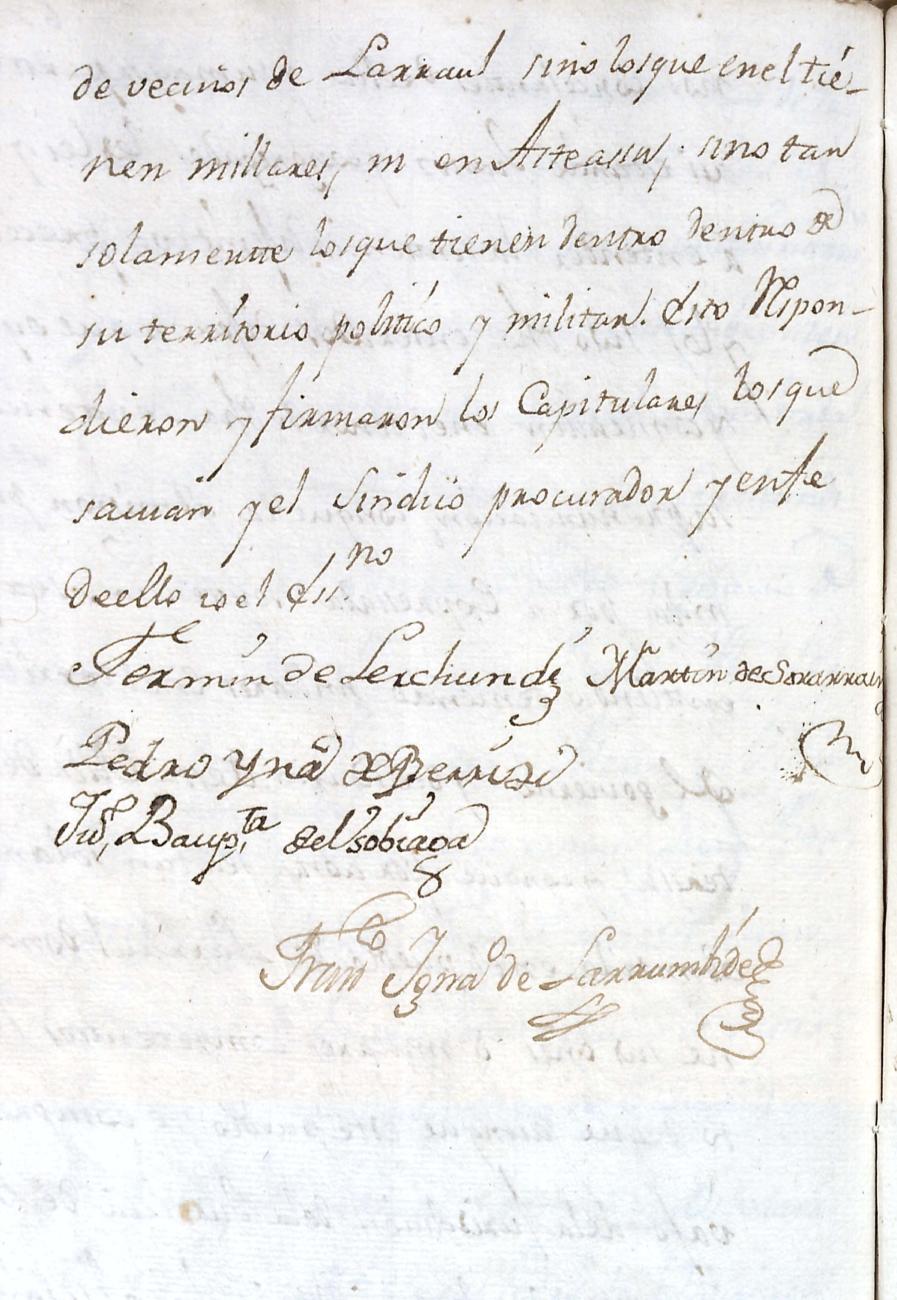 de vecinos de Larraul sino los que en el tié-
nen millares, ni en Asteasu, sino tan
solamentte los que tienen dentro dentro de
su terrítorio político y militar. Esto Respon-
dieron y firmaron los Capitulares los que
savian y el Sindico procurador y en fe
de ello io el Ess.no
Fermin de Lerchundi Martin de Sorarrain
Pedro Yna.o de Berrizi
Ju.n Baup.ta de Lsobiaga
Fran.co Igna.o de Larrumbide